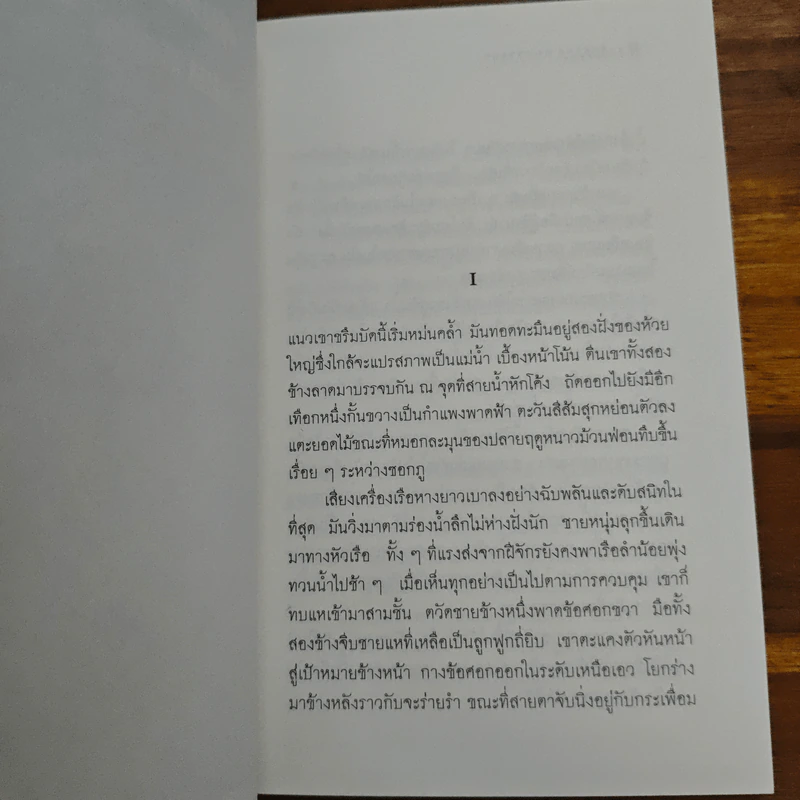 I
แนวเขาขรึมบัดนี้เริ่มหม่นคล้ำ มันทอดทะมึนอยู่สองฝั่งของห้วย
ใหญ่ซึ่งใกล้จะแปรสภาพเป็นแม่น้ำ เบื้องหน้าโน้น ตีนเขาทั้งสอง
ข้างลาดมาบรรจบกัน ณ จุดที่สายน้ำหักโค้ง ถัดออกไปยังมีอีก
เทือกหนึ่งกั้นขวางเป็นกำแพงพาดฟ้า ตะวันสีส้มสุกหย่อนตัวลง
แตะยอดไม้ขณะที่หมอกละมุนของปลายฤดูหนาวม้วนฟ่อนทึบขึ้น
เรื่อย ๆ ระหว่างซอกภู
เสียงเครื่องเรือหางยาวเบาลงอย่างฉับพลันและดับสนิทใน
ที่สุด มันวิ่งมาตามร่องน้ำลึกไม่ห่างฝั่งนัก ชายหนุ่มลุกขึ้นเดิน
มาทางหัวเรือ ทั้ง ๆ ที่แรงส่งจากฝีจักรยังคงพาเรือลำน้อยพุ่ง
ทวนน้ำไปช้า ๆ เมื่อเห็นทุกอย่างเป็นไปตามการควบคุม เขาก็
ทบแหเข้ามาสามชั้น ตวัดชายข้างหนึ่งพาดข้อศอกขวา มือทั้ง
สองข้างจีบชายแหที่เหลือเป็นลูกฟูกถี่ยิบ เขาตะแคงตัวหันหน้า
สู่เป้าหมายข้างหน้า กางข้อศอกออกในระดับเหนือเอว โยกร่าง
มาข้างหลังราวกับจะร่ายรำ ขณะที่สายตาจับนิ่งอยู่กับกระเพื่อม